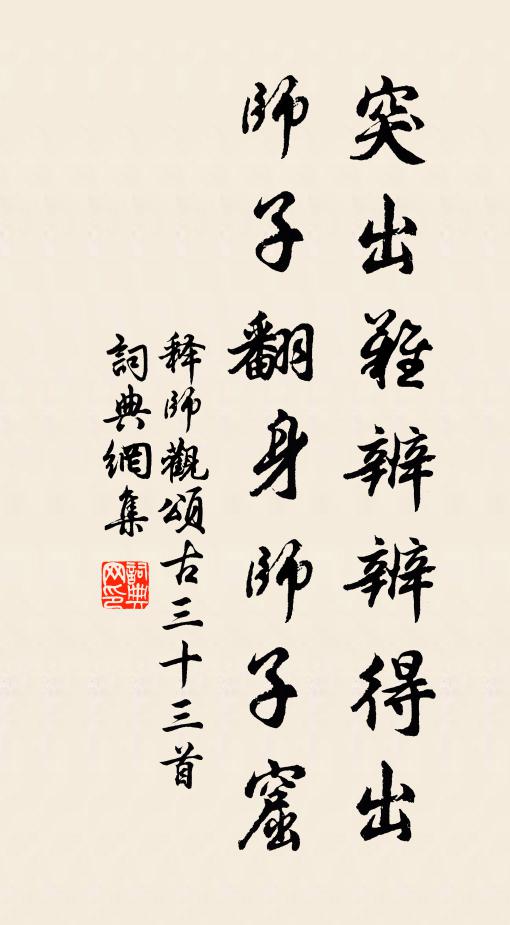 突出難辨辨得出
師子翻身師子窟
释師觀頌古三十三首
詞典網集
詞典网印